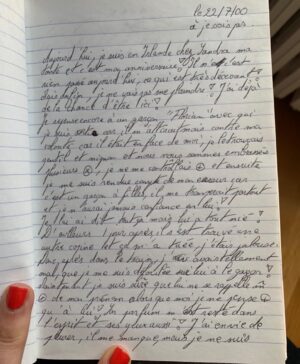 le 22/7/00
à je sais pas.
Aujourd'hui, je suis en Irlande chez Sandra ma
et c'est mon anniversaire ! Il m'a c'est
rien passé aujourd'hui, ce qui est très décevant
mais enfin je ne vais pas me plaindre ! J'ai déjà
de la chance d'être ici !
Je repense encore à un garçon "Florian" avec qui
je suis sortie car il m'attirait mais contre ma
volonté car il était en face de moi, je le trouvais
gentil et mignon et nous nous sommes embrassés
plusieurs, je ne me contrôlais et ensuite
je me suis rendu compte de mon erreur car
c'est un garçon à filles et me trompait partout
et je n'aurais jamais confiance en lui !
Je lui ai dit tout ça mais lui a tout nié !
D'ailleurs 1 jour après il est trouvé une
autre copine et ça m'a tuée, j'étais jalouse
après dans le
mal, que je me suis sur lui à le garçon
maintenant je suis sûre que lui ne se rappelle
de mon prénom alors que moi je ne pense
qu'à lui ! Un parfum m'est resté dans
l'esprit et ses yeux aussi ! J'ai envie de
pleurer, il me manque mais je me suis